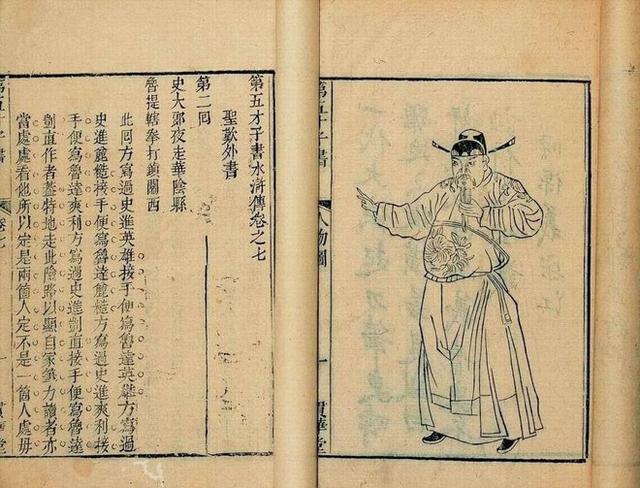 第五才子書
人物圖
一
貫華堂
第五才子書水滸傳卷之七
聖歎外書
第二囘
史大郎夜走華陰縣
魯提轄拳打鎮關西
此囘方寫過史進英雄接手便寫魯達英雄方寫過
史進麄糙接手便寫魯達麄糙方寫過史進爽利接
手便寫魯達爽利方寫過史進剴直接手便寫魯達
剴直作者葢特地走此險路以顯自家筆力讀者亦
當處處看他所以定是兩箇人定不是一箇人處毋
第五才子書
卷七
一
貫華堂